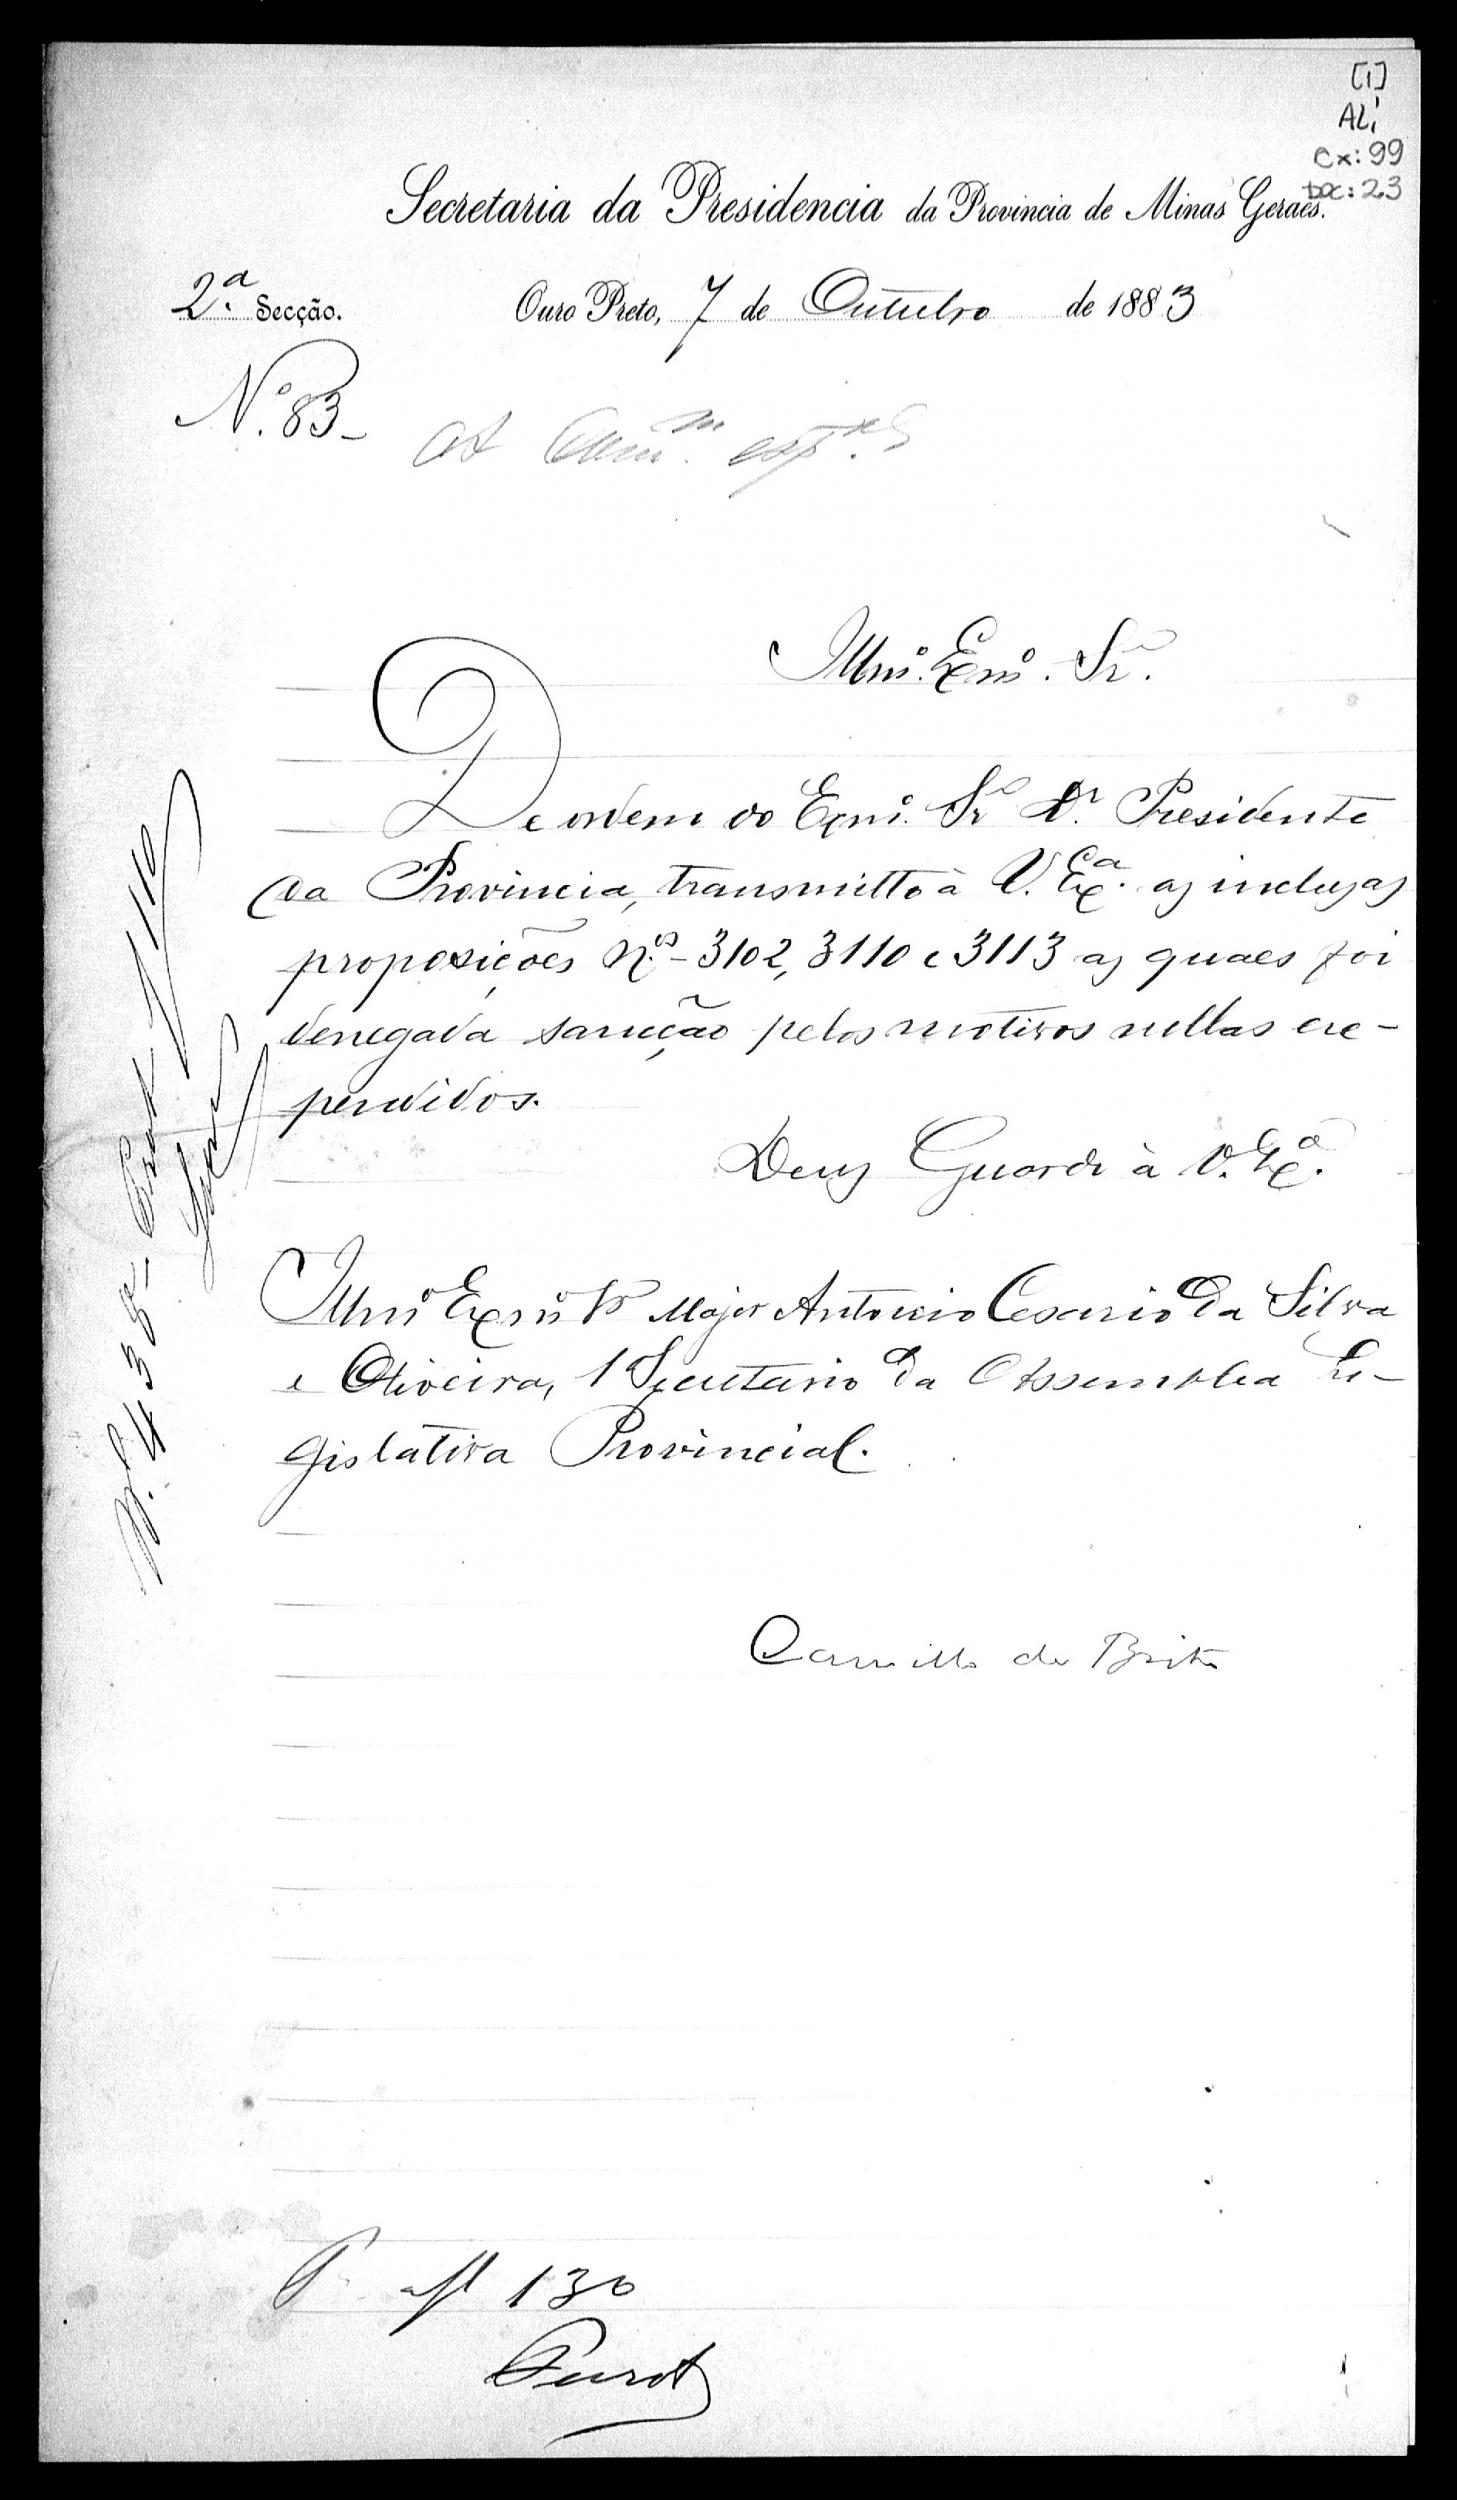 [1]
AL1
Cx: 99
Doc: 23
Secretaria da Presidencia da Provincia de Minas Geraes.
2.ª Secção. Ouro Preto, 7 de Outubro de 1883
Nº. 83-
Illmº. Exmº. Sr.
De ordem do Exmº. Sr. Dr. Presidente
da Provincia, transmitto à V. Exª. as inclusas
proposições N.os - 3102, 3110 e 3113 as quaes foi
denegada sancção pelos motivos nellas ex-
pendidos.
Deus Guarde à V. Exª.
Illmº Exmº Sr Major Antonio Cesario da Silva
e Oliveira, 1 Secretario da Assemblea Le-
gislativa Provincial.
Camillo de Brito
N. 438-
P. a fl 130